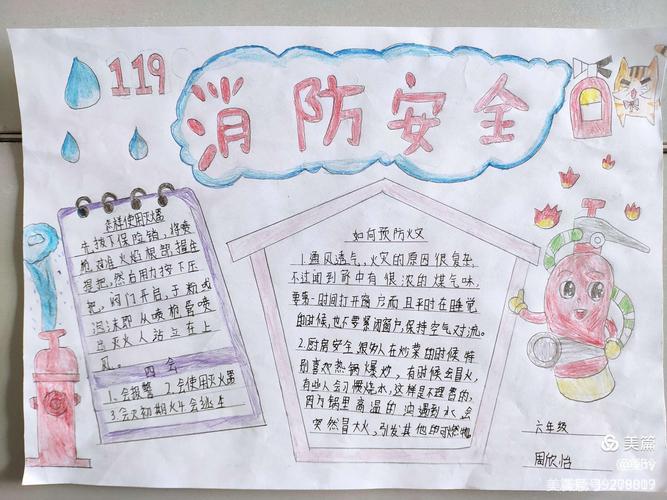 119
消防安全
怎样使用灭火器
先拔下保险销,将喷
枪对准火焰根部,握住
提把,然右用力按下压
把,阀门开启,干粉或
泡沫即从喷枪管喷
出灭火人站立在上
风。
四会
1.会报警 2.会使用灭火器
3.会灭初期火4.会逃生
如何预防火灾
1.通风透气,火灾的原因很复杂,
不过闻到所中有很浓的煤气味,
要第一时间打开窗户而且平时在睡觉
的时候,也不要紧闭窗户,保持空气对流。
2.厨房安全很多人在炒菜的时候特
别喜欢热锅爆炒,有时候会冒火,
有些人会习惯烧水,这样是不理智的,
因为锅里高温的油遇到水会
突然冒大火,引发其他的可燃物
六年级
周欣怡
美篇